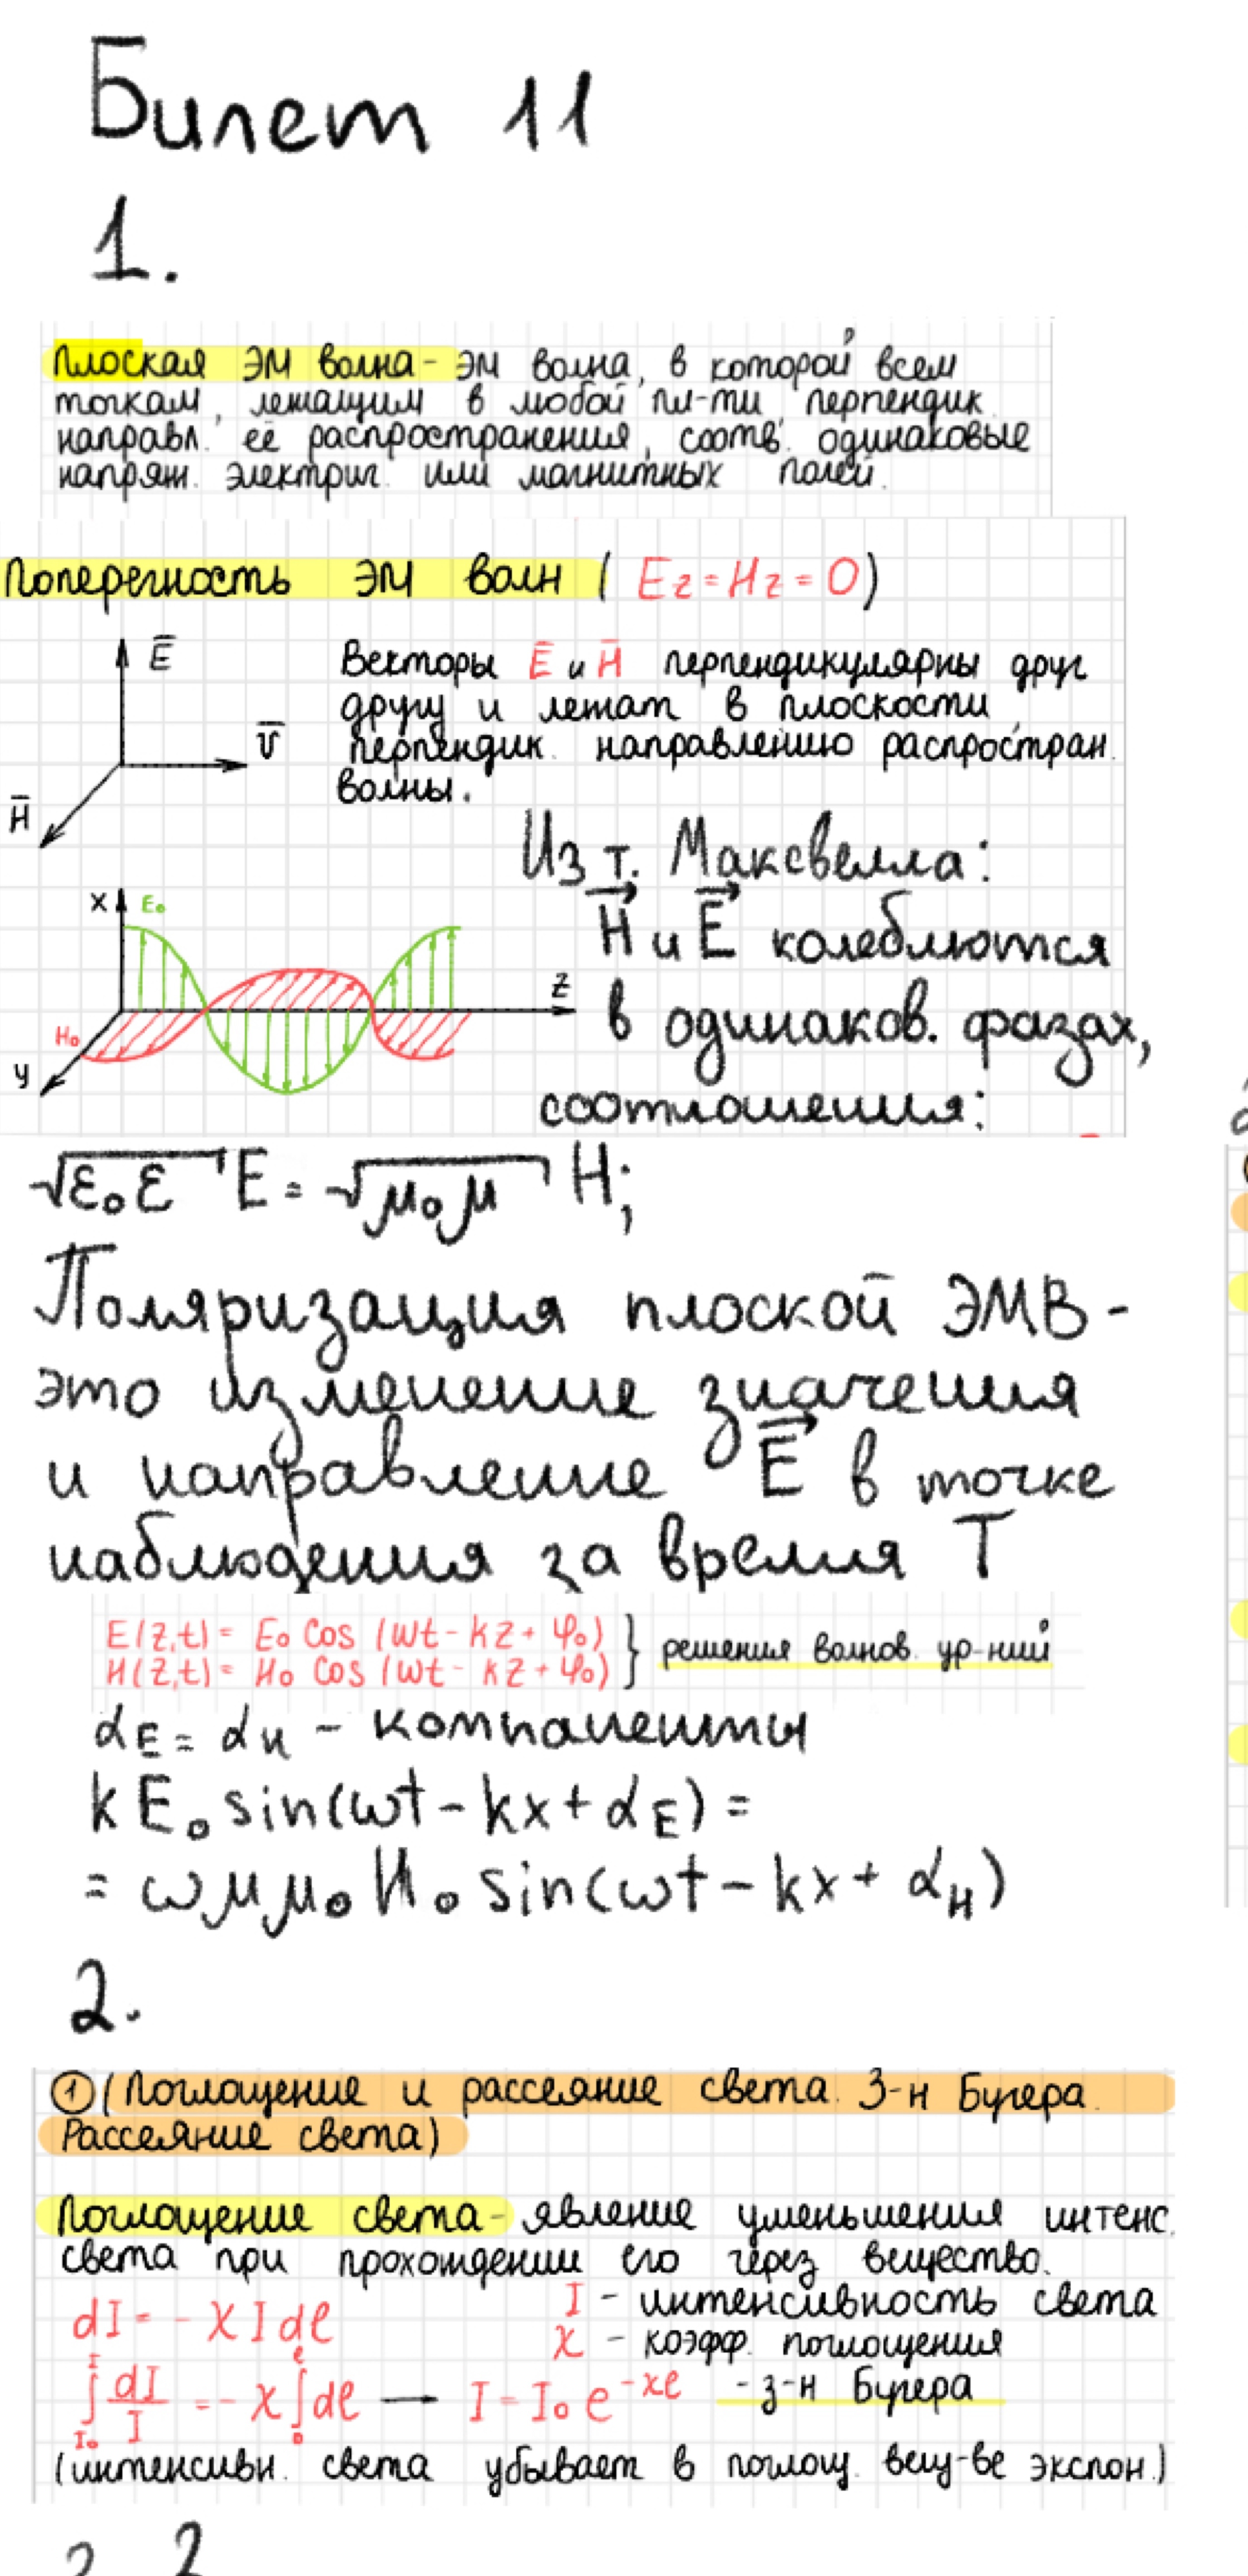 Билет 11
1.
Плоская ЭМ волна - ЭМ волна, в которой всем
точкам, лежащим в любой пл-ти, перпендик.
направл. её распространения, соотв. одинаковые
напряж. электрич. или магнитных полей.
Поперечность ЭМ волн ( Ez = Hz = 0)
E
V
H
Векторы E и H перпендикулярны друг
другу и лежат в плоскости,
перпендик. направлению распростран.
волны.
Из т. Максвелла:
H и E колеблются
в одинаков. фазах,
соотношения:
X E₀
Z
H₀
y
√ε₀ε E = √μ₀μ H;
Поляризация плоской ЭМВ -
это изменение значения
и направление E в точке
наблюдения за время T
E(z,t) = E₀ cos (ωt - kz + φ₀)
H(z,t) = H₀ cos (ωt - kz + φ₀)
} решения волнов. ур-ний
αE = αH - компаненты
kE₀ sin(ωt - kx + αE) =
= ωμμ₀H₀ sin(ωt - kx + αH)
2.
① (Поглощение и рассеяние света. З-н Бугера.
Рассеяние света)
Поглощение света - явление уменьшения интенс.
света при прохождении его через вещество.
dI = - χ I dℓ
I - интенсивность света
χ - коэфф. поглощения
∫ᴵI₀ dI/I = - χ ∫ℓ0 dℓ → I = I₀ e^-χℓ - з-н Бугера
(интенсивн. света убывает в поглощ. вещ-ве экспон.)